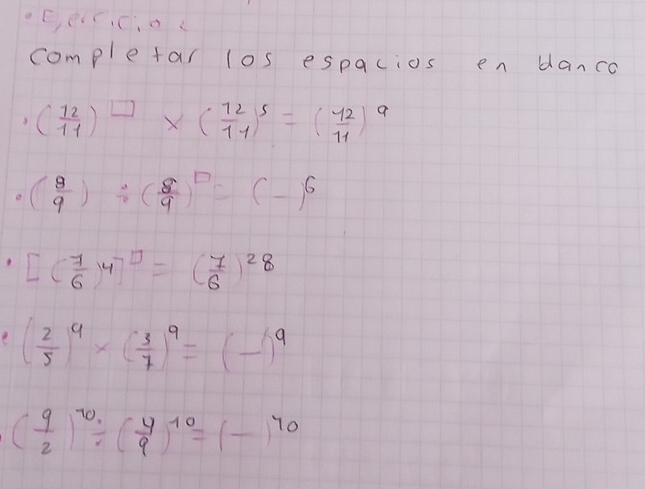 • Ejercicios
completar los espacios en blanco
• (12/11)^□ × (12/11)^5 = (12/11)^9
• (8/9) ÷ (8/9)^□ = (—)^6
• [(7/6)^4]^□ = (7/6)^28
• (2/5)^9 × (3/7)^9 = (—)^9
• (9/2)^10 ÷ (4/9)^10 = (—)^10